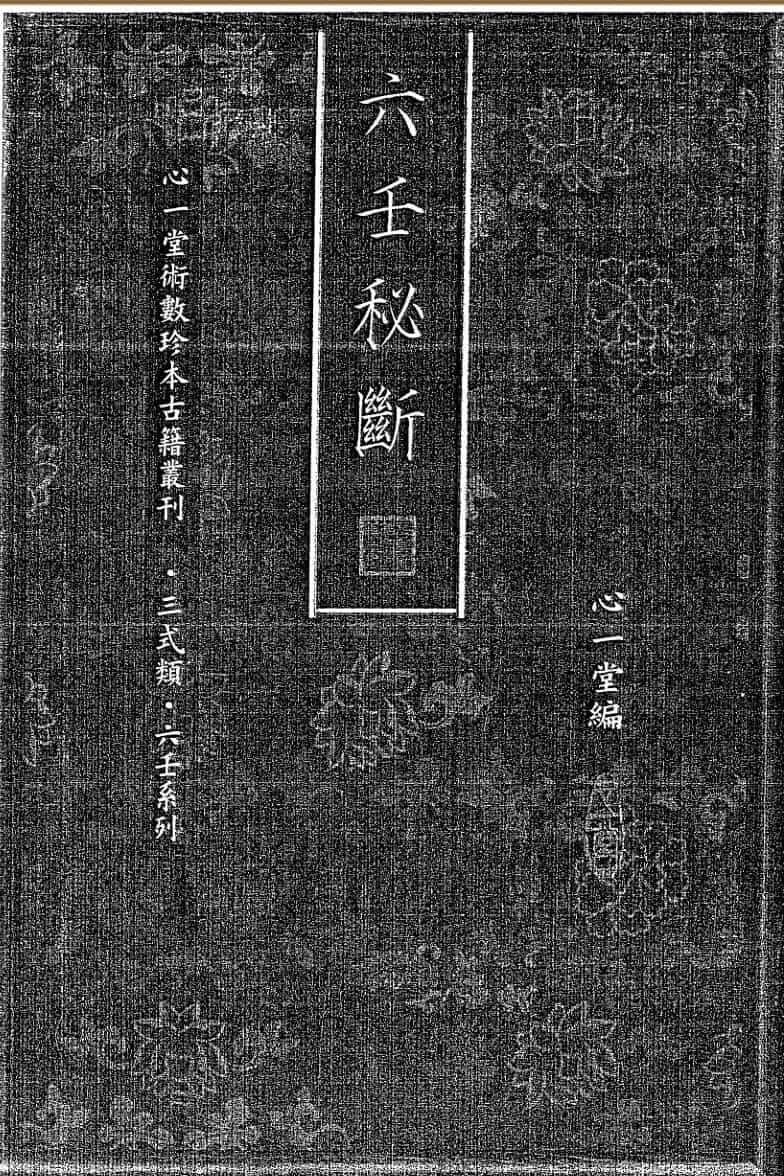 心一堂編
六壬秘斷
心一堂術數珍本古籍叢刊 ·三式類·六壬系列